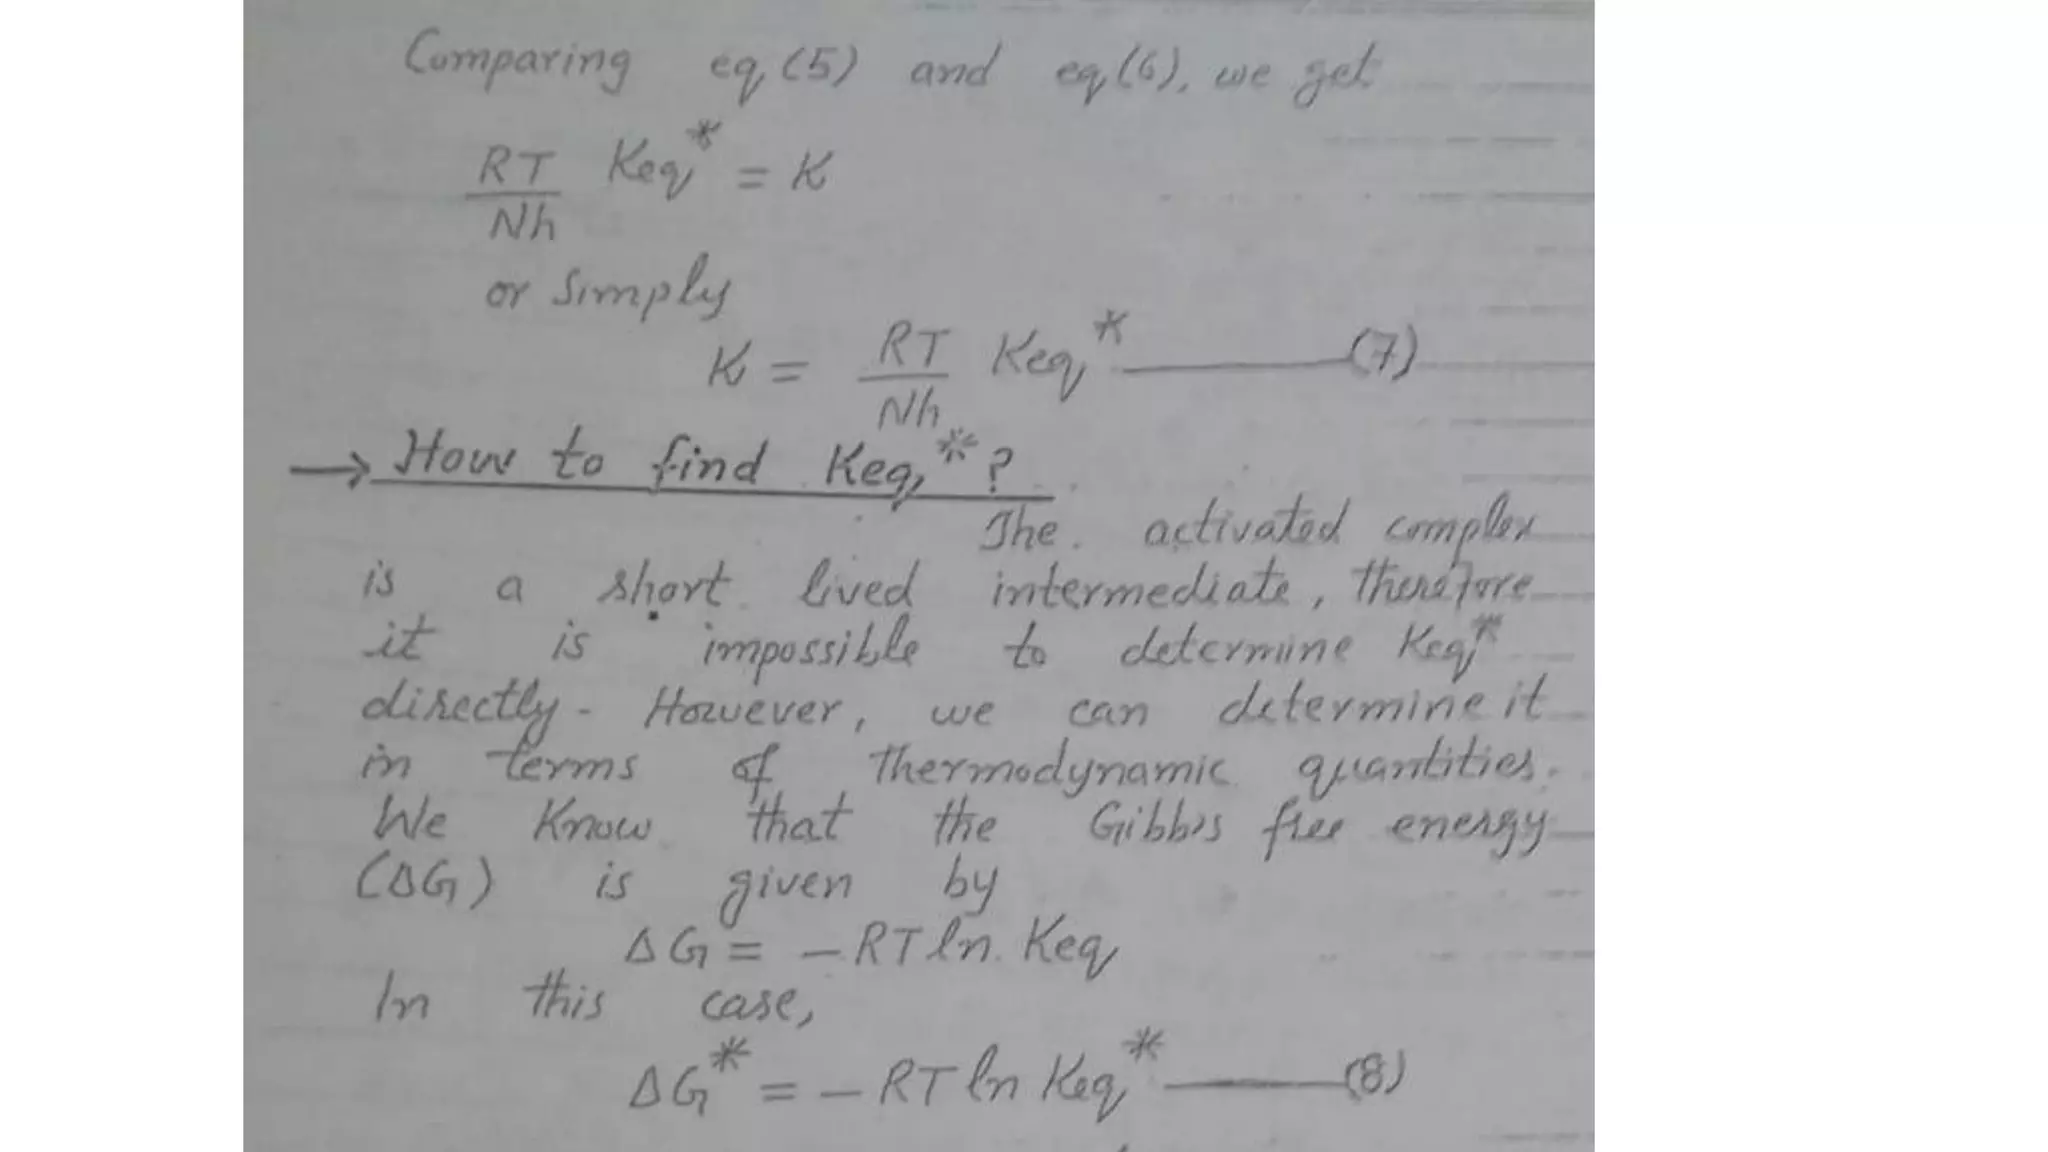 Comparing eq(5) and eq(6), we get
RT/Nh Keq* = K
or simply
K = RT/Nh Keq* ———(7)
→ How to find Keq*?
The activated complex
is a short lived intermediate, therefore
it is impossible to determine Keq*
directly. However, we can determine it
in terms of thermodynamic quantities.
We Know that the Gibbs free energy
(ΔG) is given by
ΔG = -RT ln Keq
In this case,
ΔG* = -RT ln Keq* ———(8)